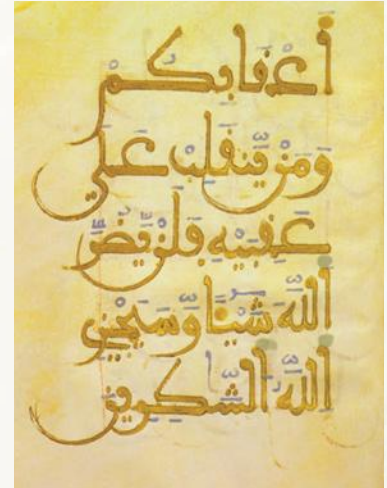 أَعْقَابِكُمْ
وَمَنْ يَّنقَلِبْ عَلَى
عَقِبَيْهِ فَلَنْ يَّضُرَّ
اللَّهَ شَيْئًا وَّسَيَجْزِي
اللَّهُ الشَّٰكِرِينَ